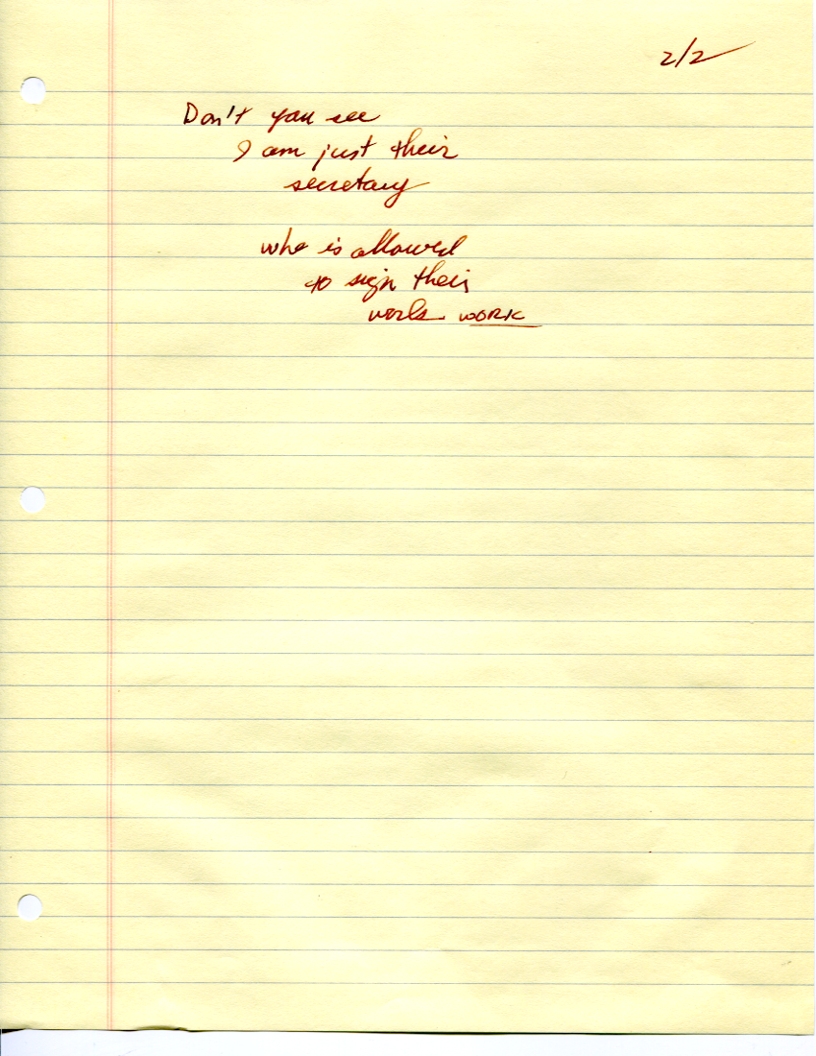 2/2
Don't you see
I am just their
secretary
who is allowed
to sign their
work WORK